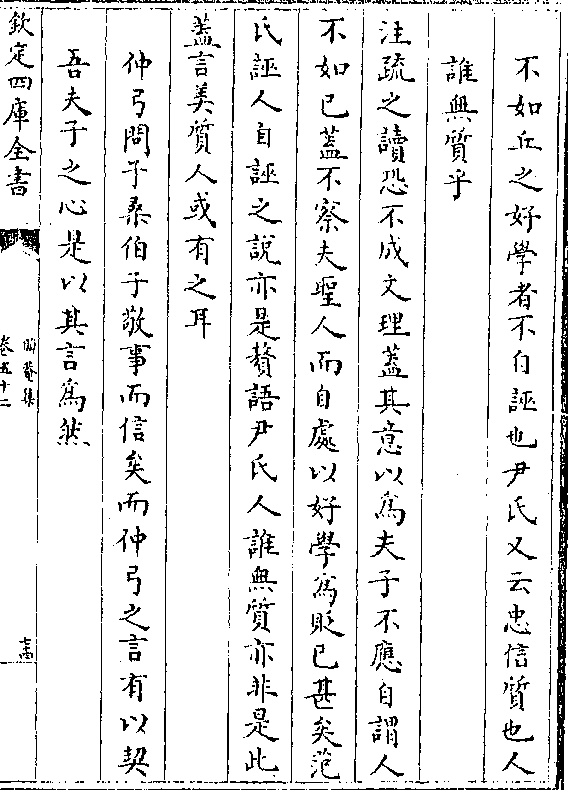 不如丘之好學者不自誣也尹氏又云忠信質也人
誰無質乎
注疏之讀恐不成文理蓋其意以爲夫子不應自謂人
不如已蓋不察夫聖人而自處以好學爲貶已甚矣范
氏誣人自誣之說亦是贅語尹氏人誰無質亦非是此
蓋言美質人或有之耳
仲弓問子桑伯子敬事而信矣而仲弓之言有以契
吾夫子之心是以其言爲然
欽定四庫全書
晦菴集
卷五十二